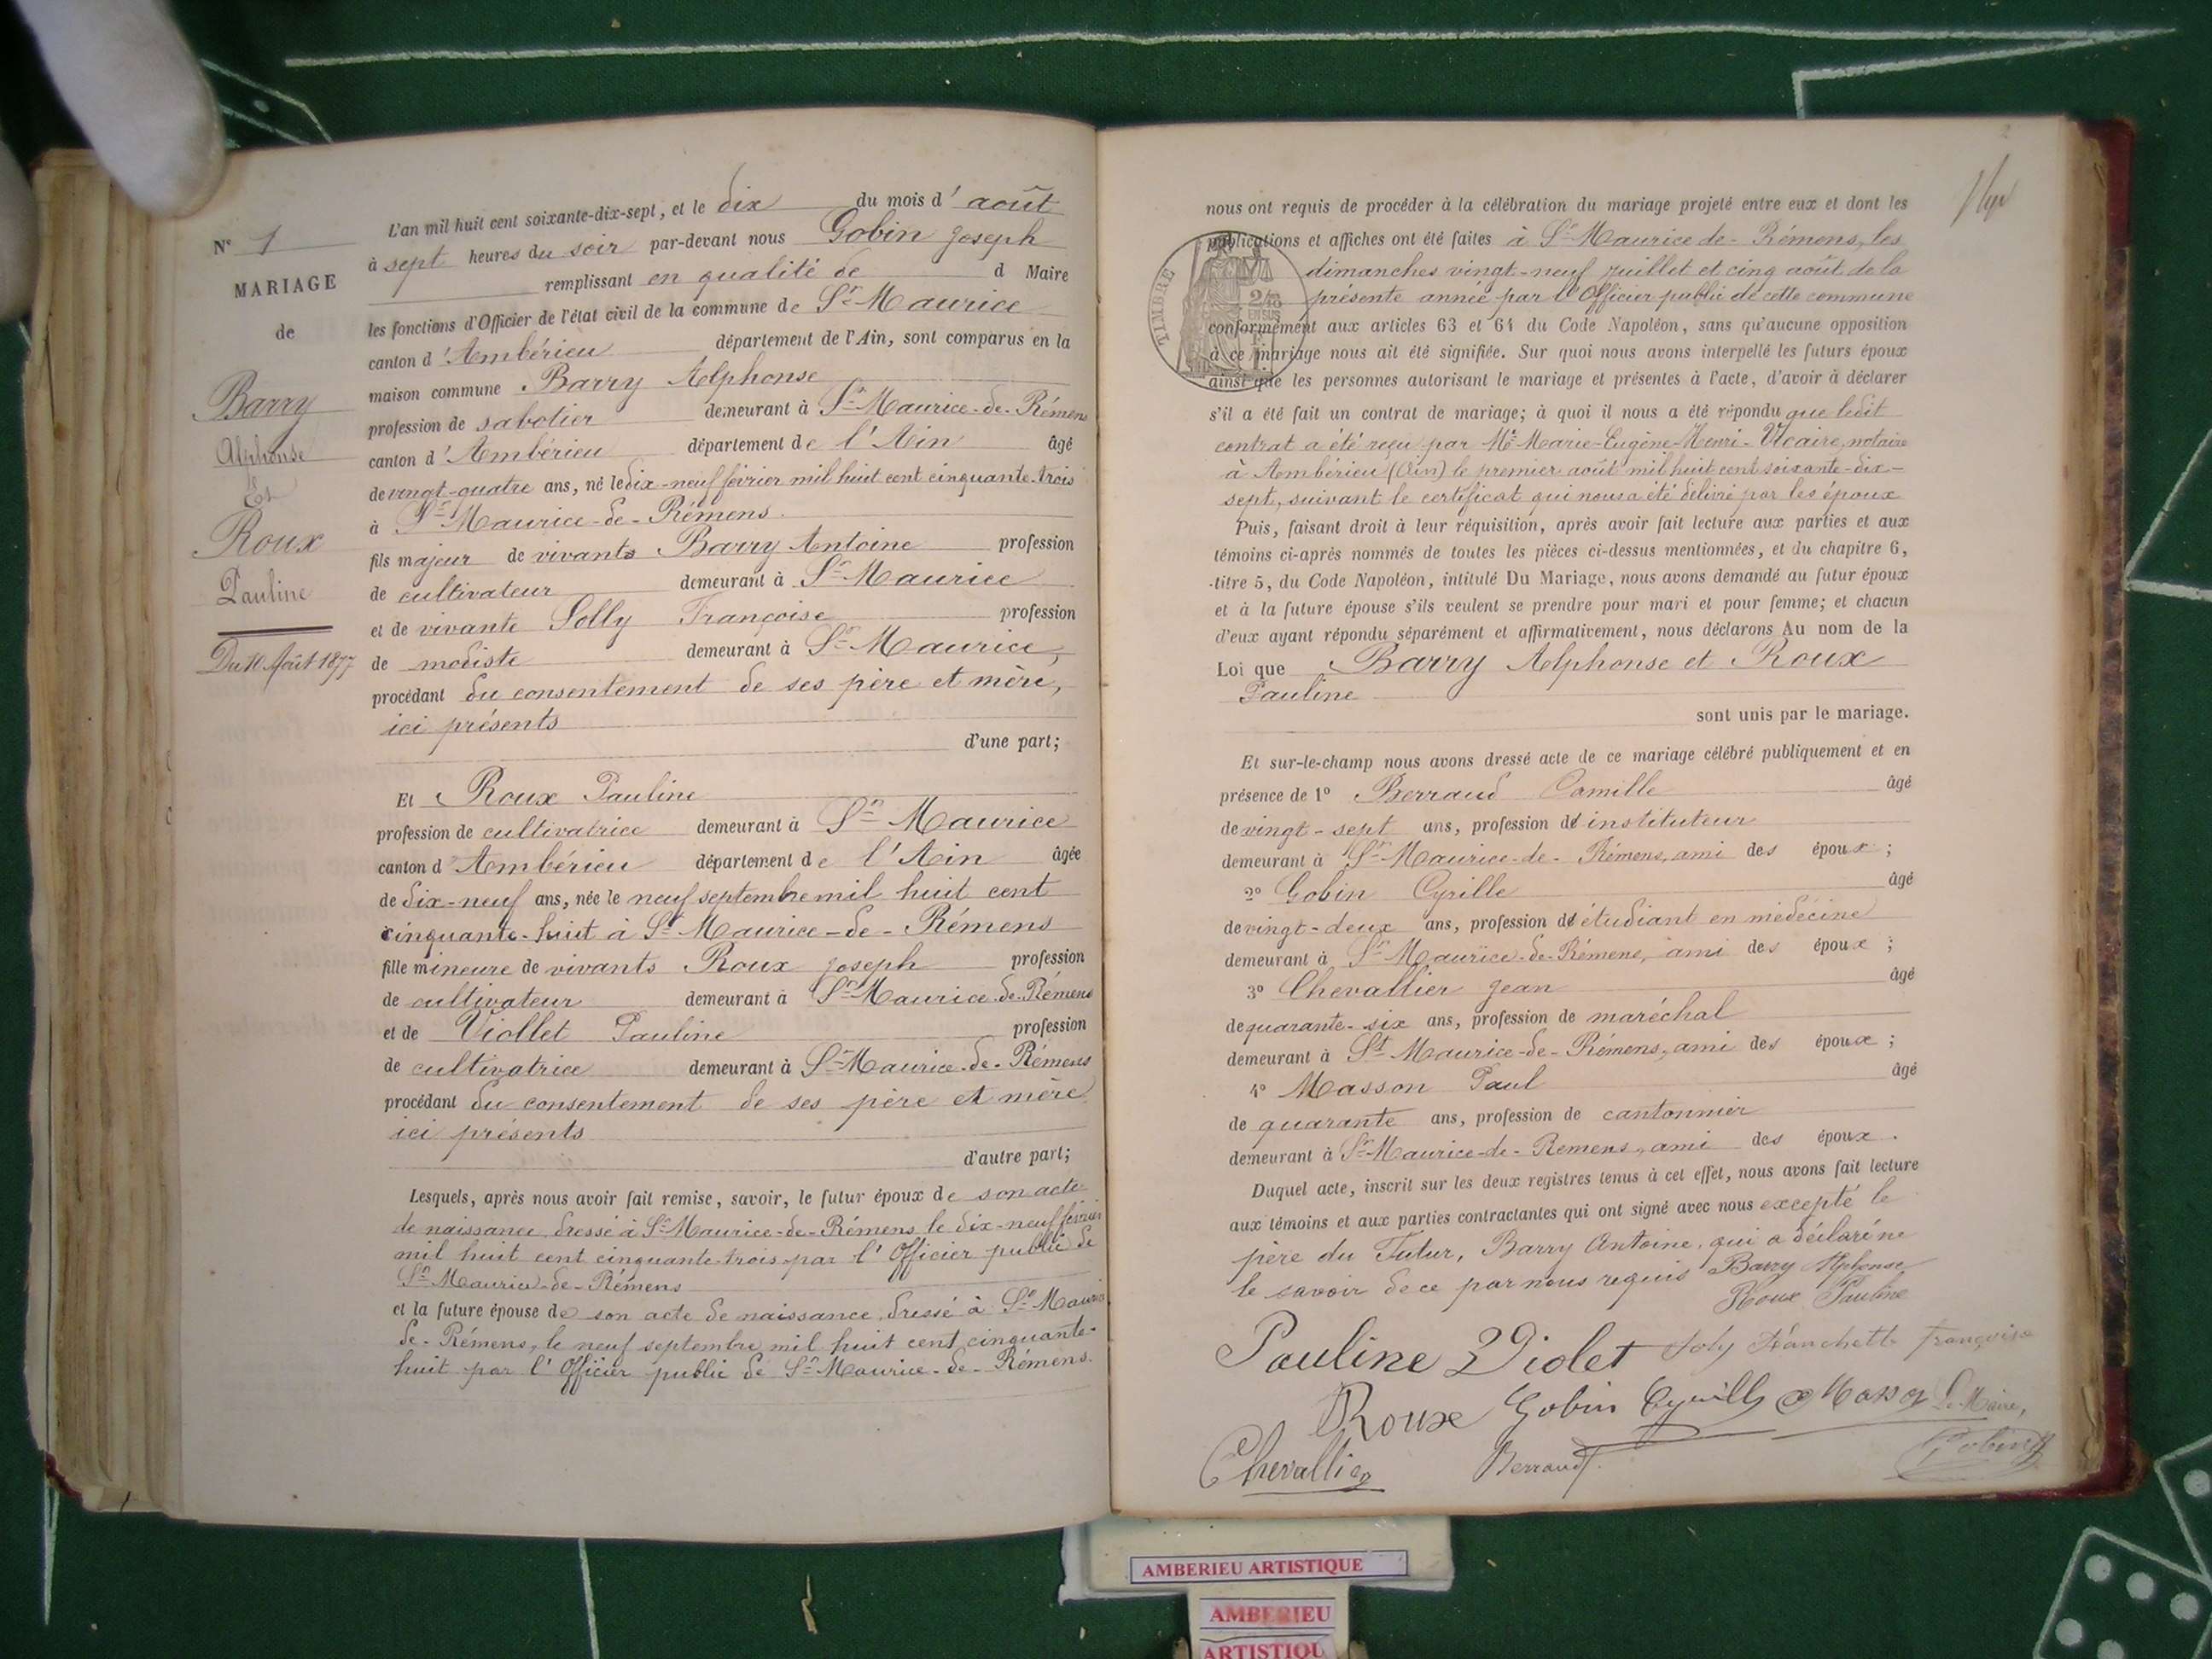 N° 1
MARIAGE
de
Barry
Alphonse
Et
Roux
Pauline
Du 10 Août 1877
L'an mil huit cent soixante-dix-sept, et le dix du mois d' août
à sept heures du soir par-devant nous Gobin Joseph
remplissant en qualité de d Maire
les fonctions d'Officier de l'état civil de la commune de St Maurice
canton d'Ambérieu département de l'Ain, sont comparus en la
maison commune Barry Alphonse
profession de sabotier demeurant à St Maurice-de-Rémens
canton d'Ambérieu département de l'Ain âgé
de vingt-quatre ans, né le dix-neuf février mil huit cent cinquante-trois
à St Maurice-de-Rémens
fils majeur de vivants Barry Antoine profession
de cultivateur demeurant à St Maurice
et de vivante Solly Françoise profession
de modiste demeurant à St Maurice,
procédant du consentement de ses père et mère,
ici présents
d'une part;
Et Roux Pauline
profession de cultivatrice demeurant à St Maurice
canton d'Ambérieu département de l'Ain âgée
de dix-neuf ans, née le neuf septembre mil huit cent
cinquante-huit à St Maurice-de-Rémens
fille mineure de vivants Roux Joseph profession
de cultivateur demeurant à St Maurice-de-Rémens
et de Viollet Pauline profession
de cultivatrice demeurant à St Maurice-de-Rémens
procédant du consentement de ses père et mère
ici présents
d'autre part;
Lesquels, après nous avoir fait remise, savoir, le futur époux de son acte
de naissance dressé à St Maurice-de-Rémens le dix-neuf février
mil huit cent cinquante-trois par l'Officier public de
St Maurice-de-Rémens
et la future épouse de son acte de naissance, dressé à St Maurice
de-Rémens, le neuf septembre mil huit cent cinquante-
huit par l'Officier public de St Maurice-de-Rémens.
2
nous ont requis de procéder à la célébration du mariage projeté entre eux et dont les
publications et affiches ont été faites à St Maurice-de-Rémens, les
dimanches vingt-neuf juillet et cinq août de la
présente année par l'Officier public de cette commune
TIMBRE
conformément aux articles 63 et 64 du Code Napoléon, sans qu'aucune opposition
à ce mariage nous ait été signifiée. Sur quoi nous avons interpellé les futurs époux
ainsi que les personnes autorisant le mariage et présentes à l'acte, d'avoir à déclarer
s'il a été fait un contrat de mariage; à quoi il nous a été répondu que ledit
contrat a été reçu par Me Marie-Eugène-Henri-Vicaire, notaire
à Ambérieu (Ain) le premier août mil huit cent soixante-dix-
sept, suivant le certificat qui nous a été délivré par les époux
Puis, faisant droit à leur réquisition, après avoir fait lecture aux parties et aux
témoins ci-après nommés de toutes les pièces ci-dessus mentionnées, et du chapitre 6,
titre 5, du Code Napoléon, intitulé Du Mariage, nous avons demandé au futur époux
et à la future épouse s'ils veulent se prendre pour mari et pour femme; et chacun
d'eux ayant répondu séparément et affirmativement, nous déclarons Au nom de la
Loi que Barry Alphonse et Roux
Pauline
sont unis par le mariage.
Et sur-le-champ nous avons dressé acte de ce mariage célébré publiquement et en
présence de 1° Berraud Camille âgé
de vingt-sept ans, profession d'instituteur
demeurant à St Maurice-de-Rémens, ami des époux;
2° Gobin Cyrille âgé
de vingt-deux ans, profession d'étudiant en médecine
demeurant à St Maurice-de-Rémens, ami des époux;
3° Chevallier Jean âgé
de quarante-six ans, profession de maréchal
demeurant à St Maurice-de-Rémens, ami des époux;
4° Masson Paul âgé
de quarante ans, profession de cantonnier
demeurant à St Maurice-de-Remens, ami des époux.
Duquel acte, inscrit sur les deux registres tenus à cet effet, nous avons fait lecture
aux témoins et aux parties contractantes qui ont signé avec nous excepté le
père du Futur, Barry Antoine, qui a déclaré ne
le savoir de ce par nous requis Barry Alphonse
Roux Pauline
Pauline Violet Soly Françoise
Roux Gobin Cyrille Masson Le Maire,
Chevallier Berraud Gobin
AMBERIEU ARTISTIQUE
AMBERIEU
ARTISTIQU